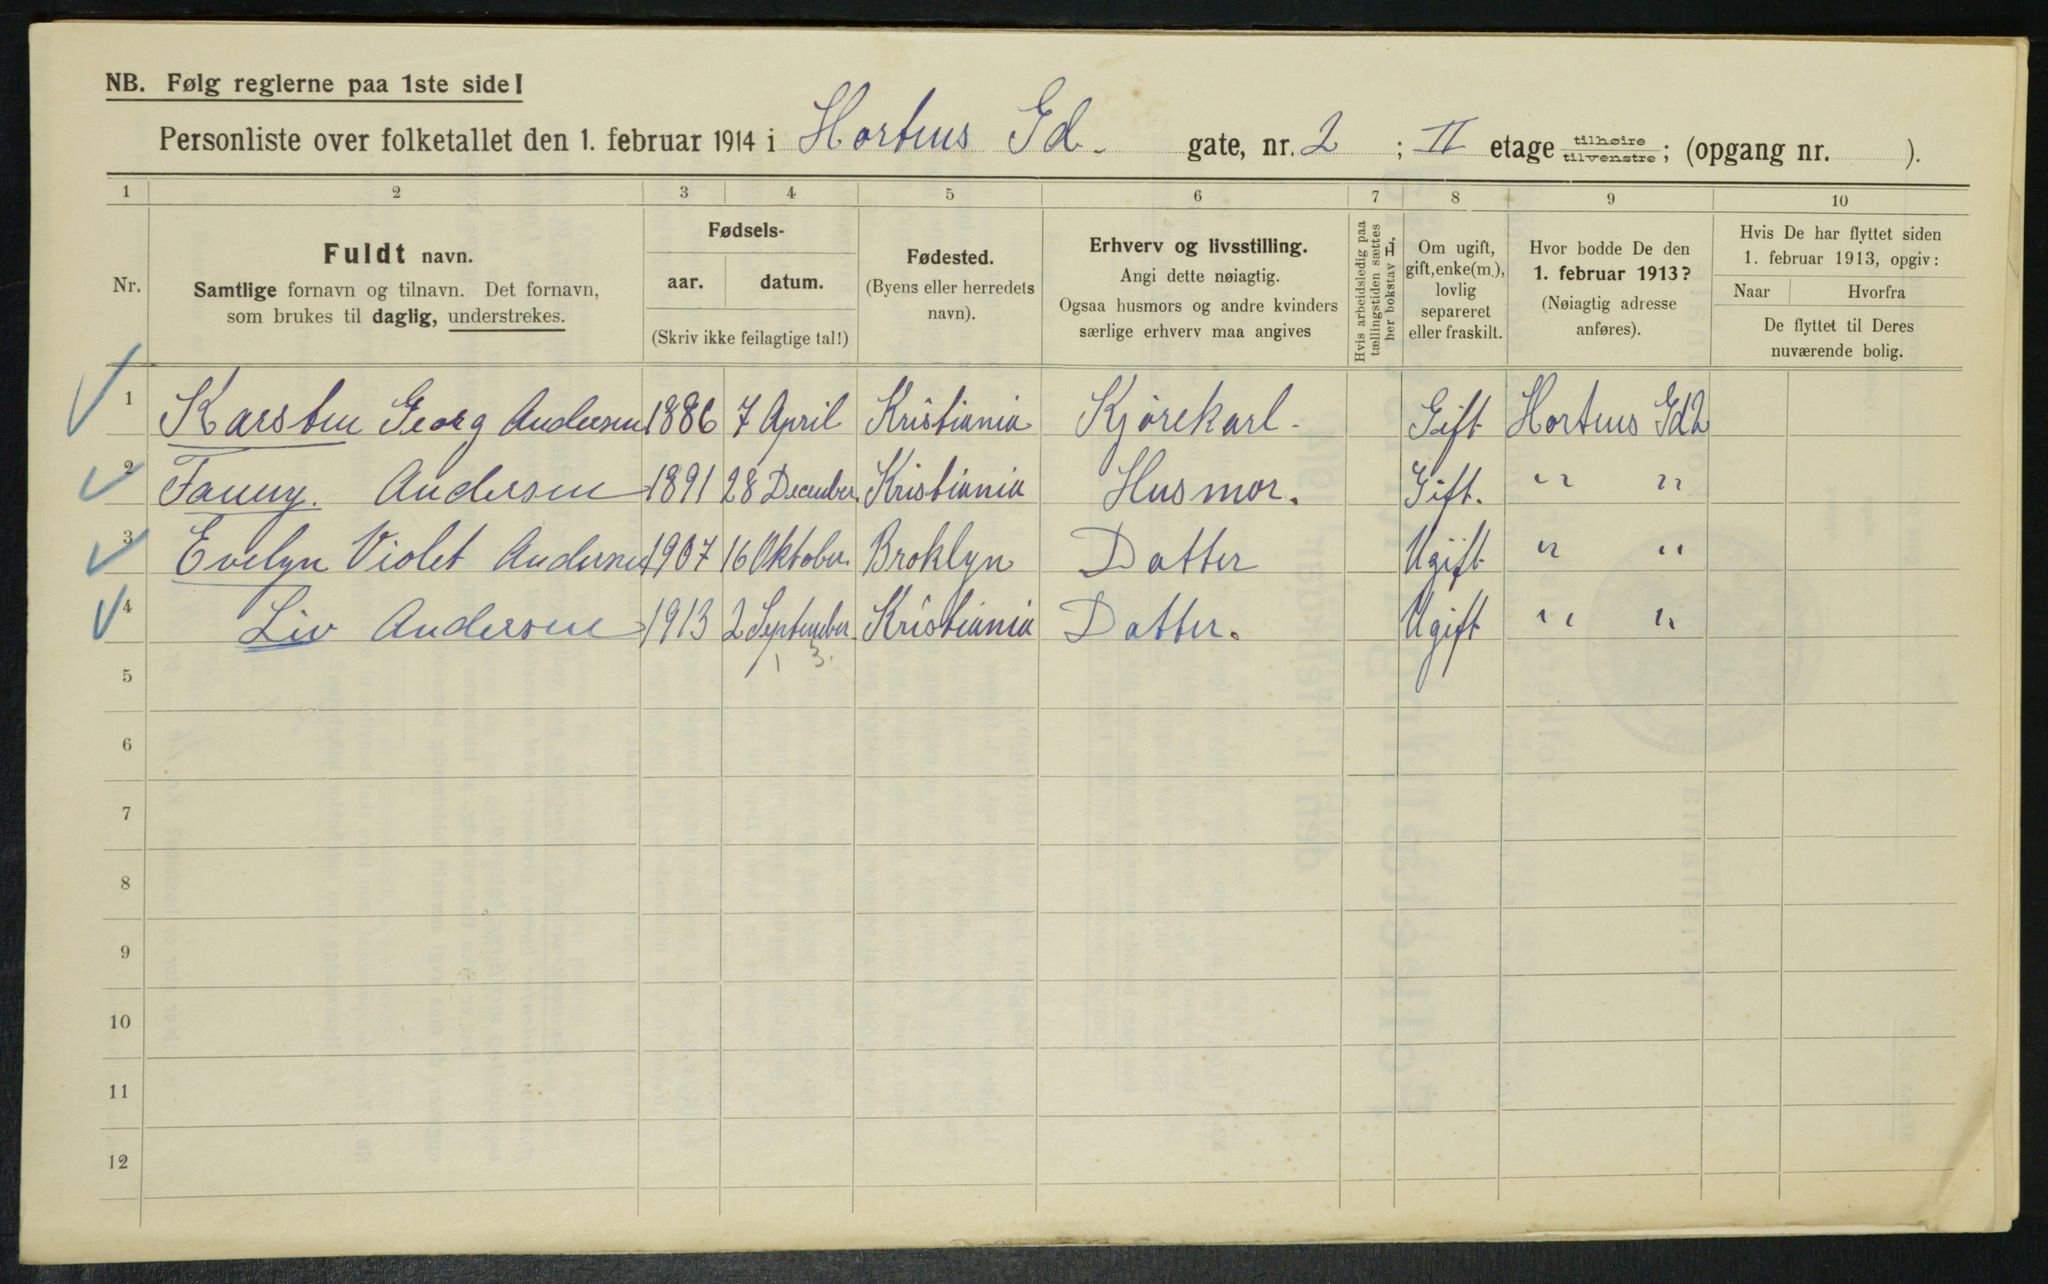 NB. Følg reglerne paa 1ste side!
Personliste over folketallet den 1. februar 1914 i Hortus Gd. gate, nr. 2 ; II etage tilhøire tilvenstre ; (opgang nr. ).
1 2 3 4 5 6 7 8 9 10
Nr.
Fuldt navn.
Samtlige fornavn og tilnavn. Det fornavn,
som brukes til daglig, understrekes.
Fødsels-
aar. datum.
(Skriv ikke feilagtige tal!)
Fødested.
(Byens eller herredets
navn).
Erhverv og livsstilling.
Angi dette nøiagtig.
Ogsaa husmors og andre kvinders
særlige erhverv maa angives
Hvis arbeidsledig paa
tællingstiden sættes
her bokstav H,
Om ugift,
gift, enke(m.),
lovlig
separeret
eller fraskilt.
Hvor bodde De den
1. februar 1913?
(Nøiagtig adresse
anføres).
Hvis De har flyttet siden
1. februar 1913, opgiv:
Naar Hvorfra
De flyttet til Deres
nuværende bolig.
1 Karsten Georg Andersen 1886 7 April Kristiania Kjørekarl. Gift Hortus Gd 2
2 Fanny. Andersen 1891 28 December. Kristiania Husmor. Gift. " "
3 Evelyn Violet Andersen 1907 16 Oktober. Broklyn Datter Ugift " "
4 Liv Andersen 1913 2 September Kristiania Datter. Ugift " "
1 3.
5
6
7
8
9
10
11
12